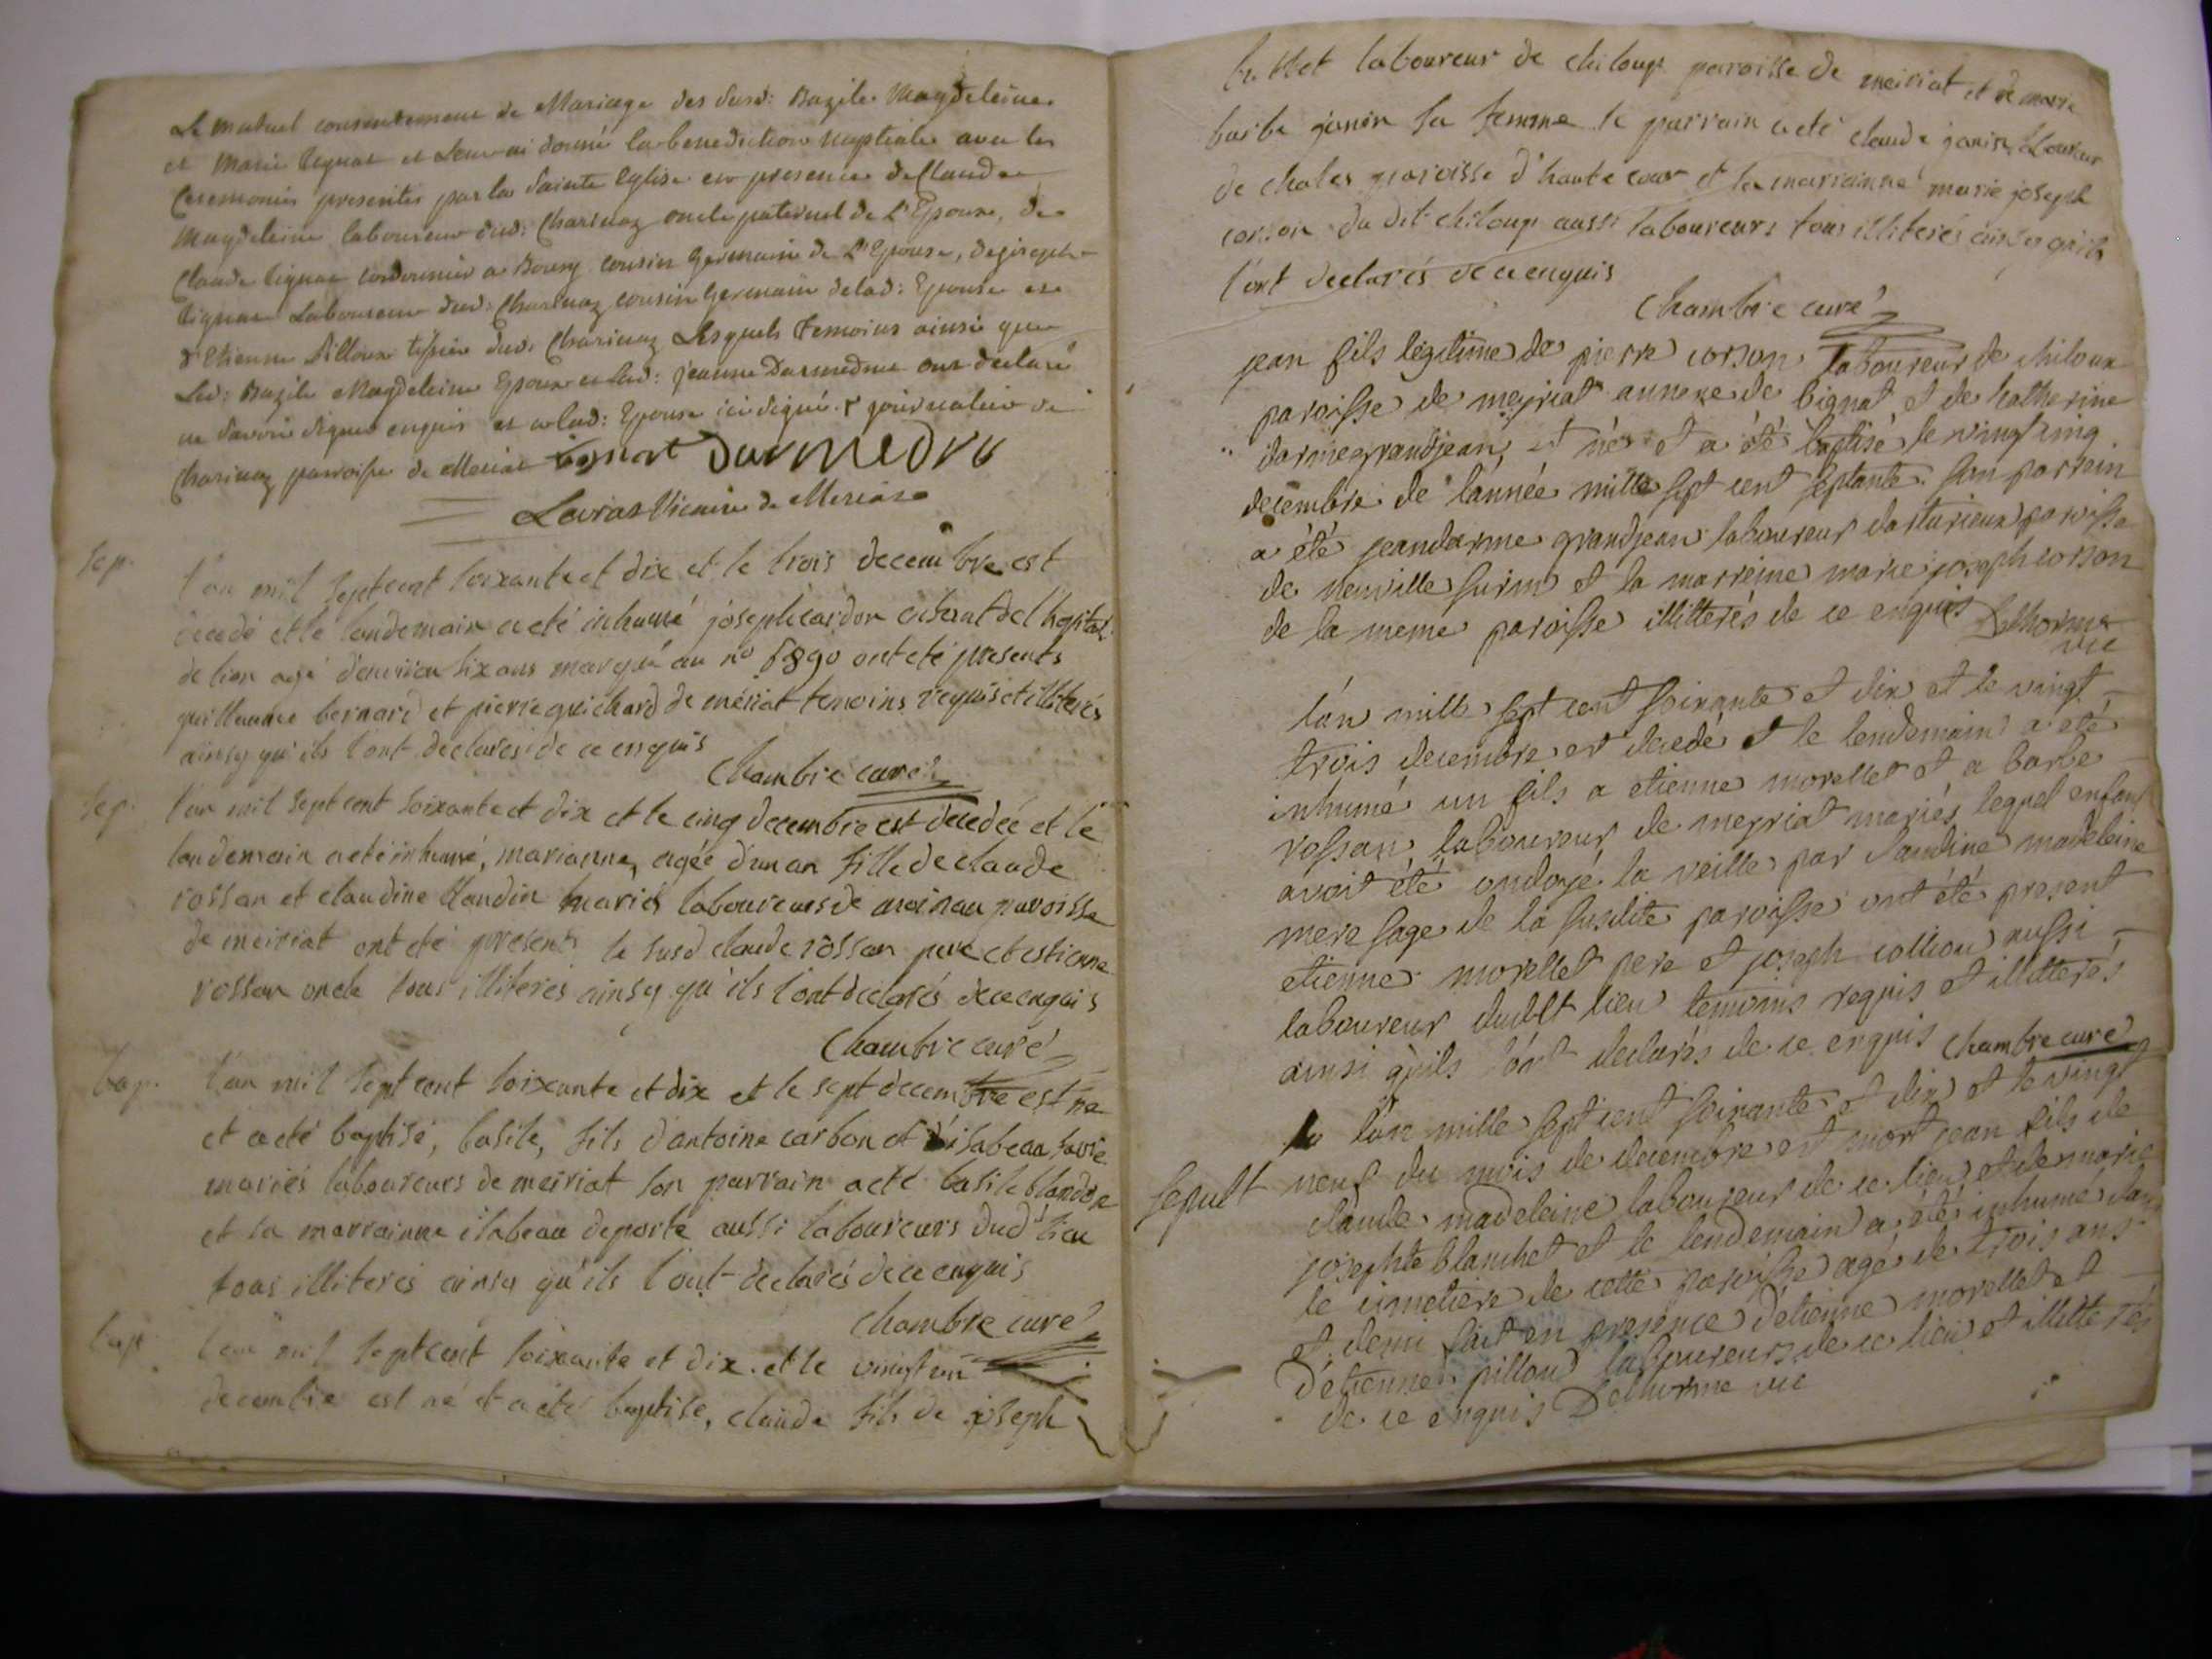 Le mutuel consentement de Mariage des susd: Bazile Magdeleine
et Marie Tignat et Leur ai donné la benediction nuptiale avec les
Ceremonies presentes par la Sainte Eglise en presence de Claude
Magdeleine laboureur dud: Charinaz oncle paternel de L'Epoux, de
Claude Tignat cordonnier a Bourg cousin germain de L'Epouse, de joseph
Tignat Laboureur dud: Charinaz cousin germain de lad: Epouse et
d'Etienne Pilloux tissier dud: Charinaz Lesquels temoins ainsi que
Led: Bazile Magdeleine Epoux et lad: jeanne Darmedru ont declaré
ne savoir signer enquis et lad: Epouse ici signé
Charinaz parroisse de Meriat tignat Darmedru
Lavras Vicaire de Meriat
Sep.
l'an mil sept cent soixante et dix et le trois decembre est
decedé et le landemain a eté inhumé joseph cardon enfant de l'hopital
de lion agé d'environ six ans marqué au n° ont eté presents
guillaume bernard et pierre guichard de mériat temoins requis et illiterés
ainsy qu'ils l'ont declarés de ce enquis
Chambre curé
Sep.
l'an mil sept cent soixante et dix et le cinq decembre est decedée et le
landemain a eté inhumé, marianne, agée d'un an fille de claude
rossan et claudine blandin mariés laboureurs de paroisse
de meiriat ont eté presents le susd claude rossan pere et estienne
rossan oncle tous illiterés ainsy qu'ils l'ont declarés de ce enquis
Chambre curé
bap.
l'an mil sept cent soixante et dix et le sept decembre est né
et a eté baptisé, basile, fils d'antoine carbon et d'isabeau
mariés laboureurs de meiriat son parrain a eté basile blandin
et sa marrainne isabeau deporte aussi laboureurs dud lieu
tous illiterés ainsy qu'ils l'ont declarés de ce enquis
Chambre curé
bap.
l'an mil sept cent soixante et dix et le vingt un
decembre est né et a eté baptisé, claude fils de joseph
buttet laboureur de chiloup paroisse de meiriat et de marie
barbe janin sa femme le parrain a eté claude janin laboureur
de chales paroisse d'haute cour et la marrainne marie joseph
corson du dit chiloup aussi laboureurs tous illiterés ainsy qu'ils
l'ont declarés de ce enquis
Chambre curé
jean fils légitime de pierre corson laboureur de chiloux
paroisse de meyriat annexe de bignat et de katherine
darmegrandjean est né et a été baptisé le vingt cinq
decembre de l'année mille sept cent septante. son parrein
a été jeandarme grandjean laboureur paroisse
de neuville surin et la marreine marie joseph corson
de la meme paroisse illitterés de ce enquis Delhorme
vic
l'an mille sept cent soixante et dix et le vingt
trois decembre est decedé et le lendemain a été
inhumé un fils a etienne morellet et a barbe
rossan laboureur de meyriat mariés lequel enfant
avoit été ondoyé la veille par claudine madeleine
mere sage de la susdite paroisse ont été present
etienne morellet pere et joseph colliou aussi
laboureur dudt lieu temoins requis et illitterés
ainsi qu'ils l'ont declarés de ce enquis Chambre curé
l'an mille sept cent soixante et dix et le vingt
Sepult
neuf du mois de decembre est mort jean fils de
claude madeleine laboureur de ce lieu et de marie
josephte blanchet et le lendemain a été inhumé dans
le cimetiere de cette paroisse agé de trois ans
et demi fait en presence d'etienne morellet et
d'etienne pilloud laboureurs de ce lieu et illitterés
de ce enquis Delhorme vic